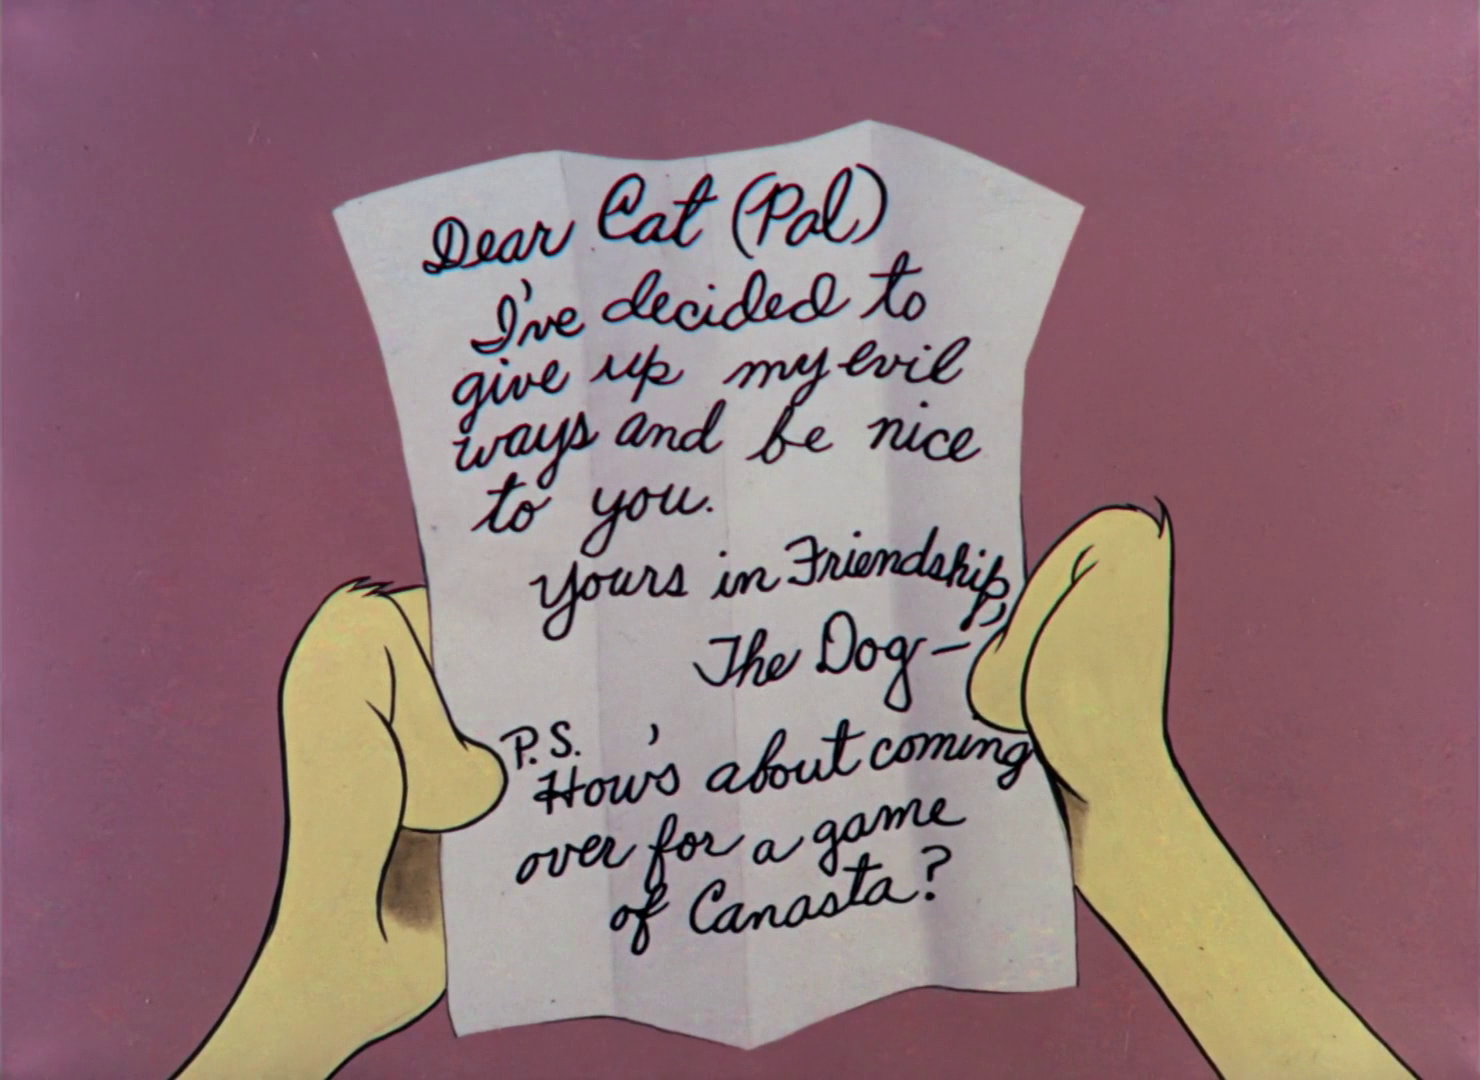 Dear Cat (Pal)
I've decided to
give up my evil
ways and be nice
to you.
Yours in Friendship,
The Dog-
P.S.
How's about coming
over for a game
of Canasta?